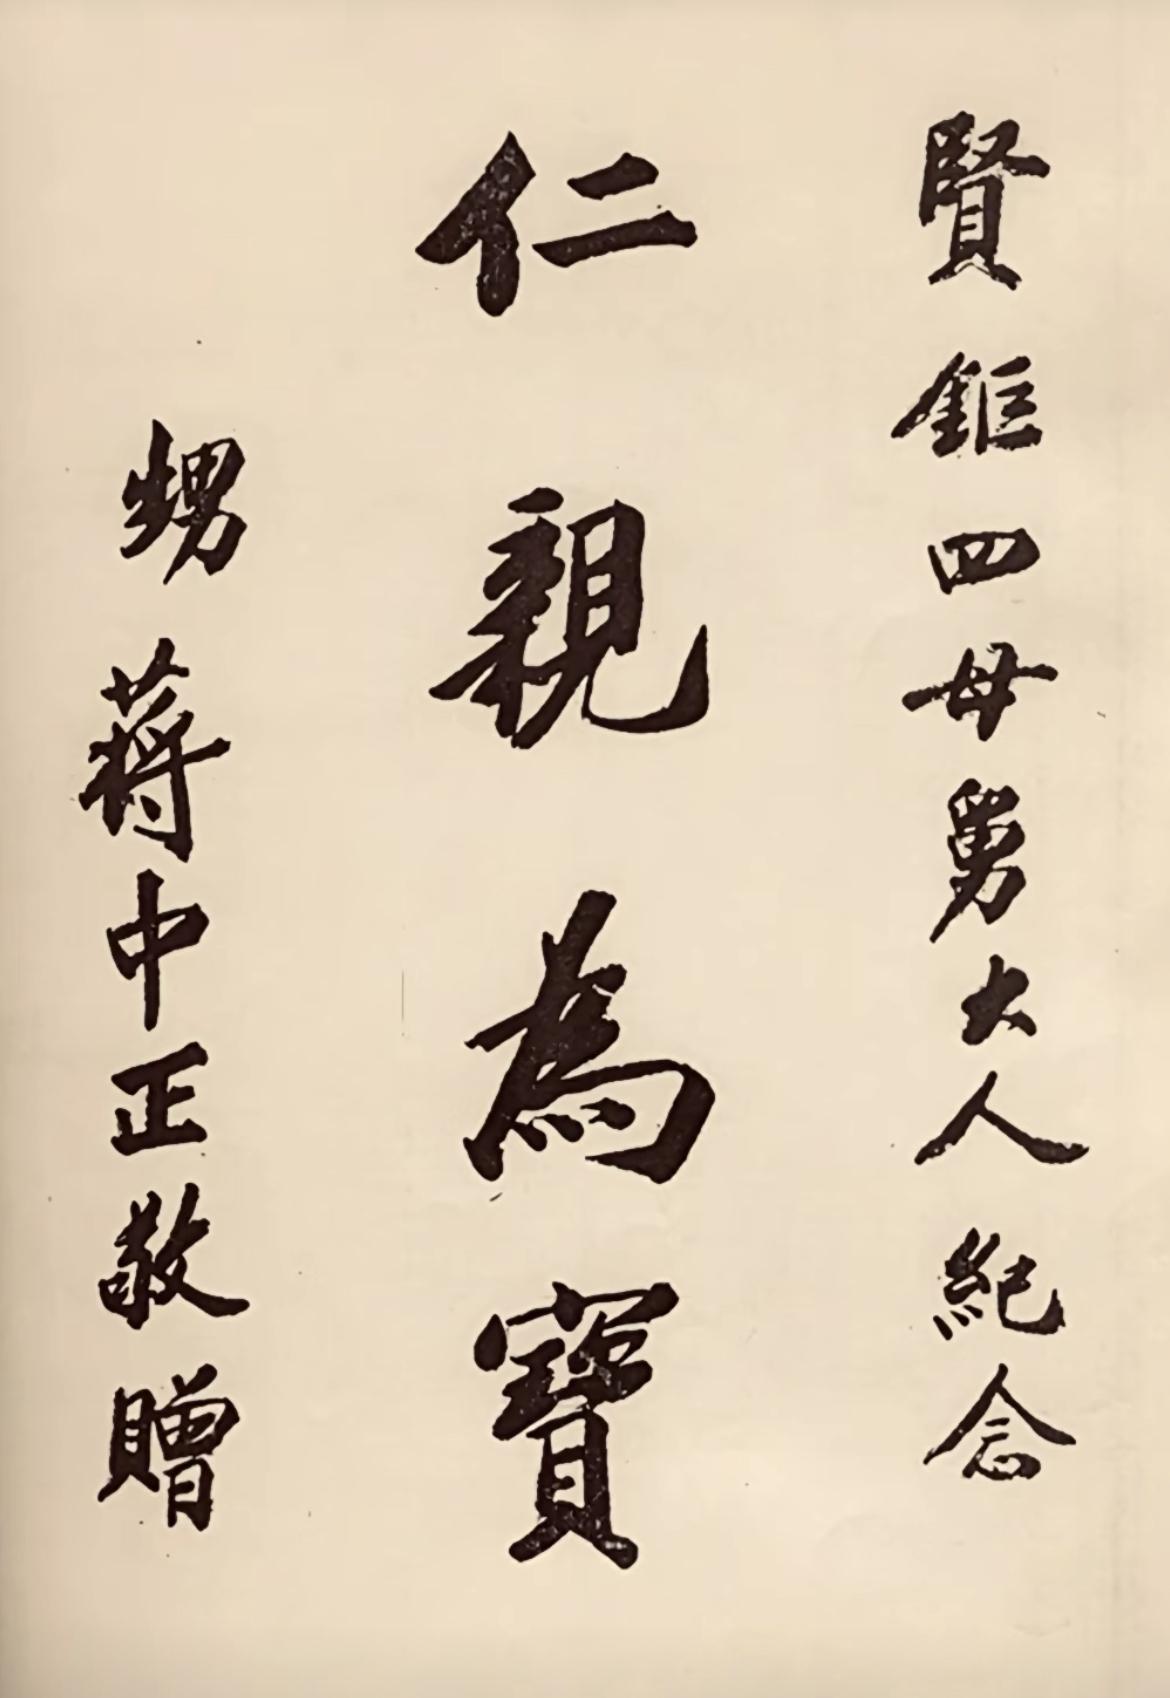 賢鉅四母舅大人 紀念
仁親為寶
甥 蔣中正敬贈